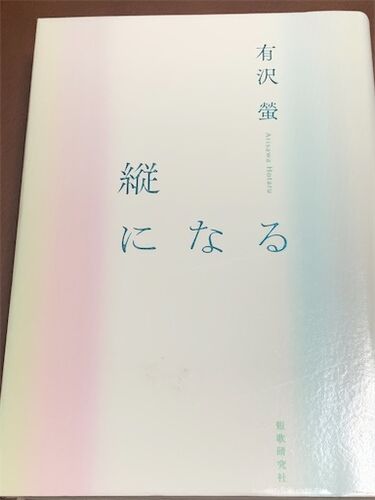 有沢 螢
Arisawa Hotaru
縦
になる
短歌研究社